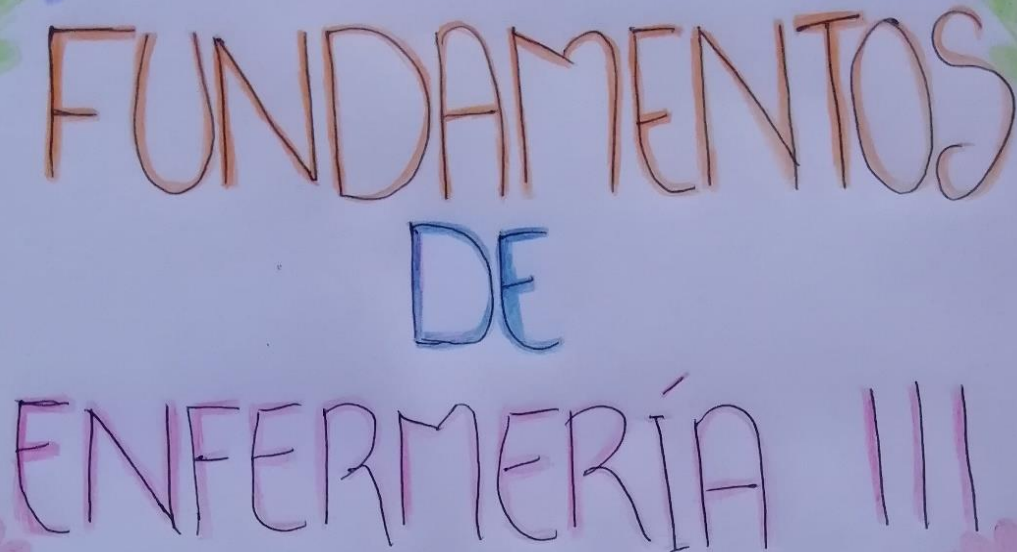 FUNDAMENTOS
DE
ENFERMERÍA III